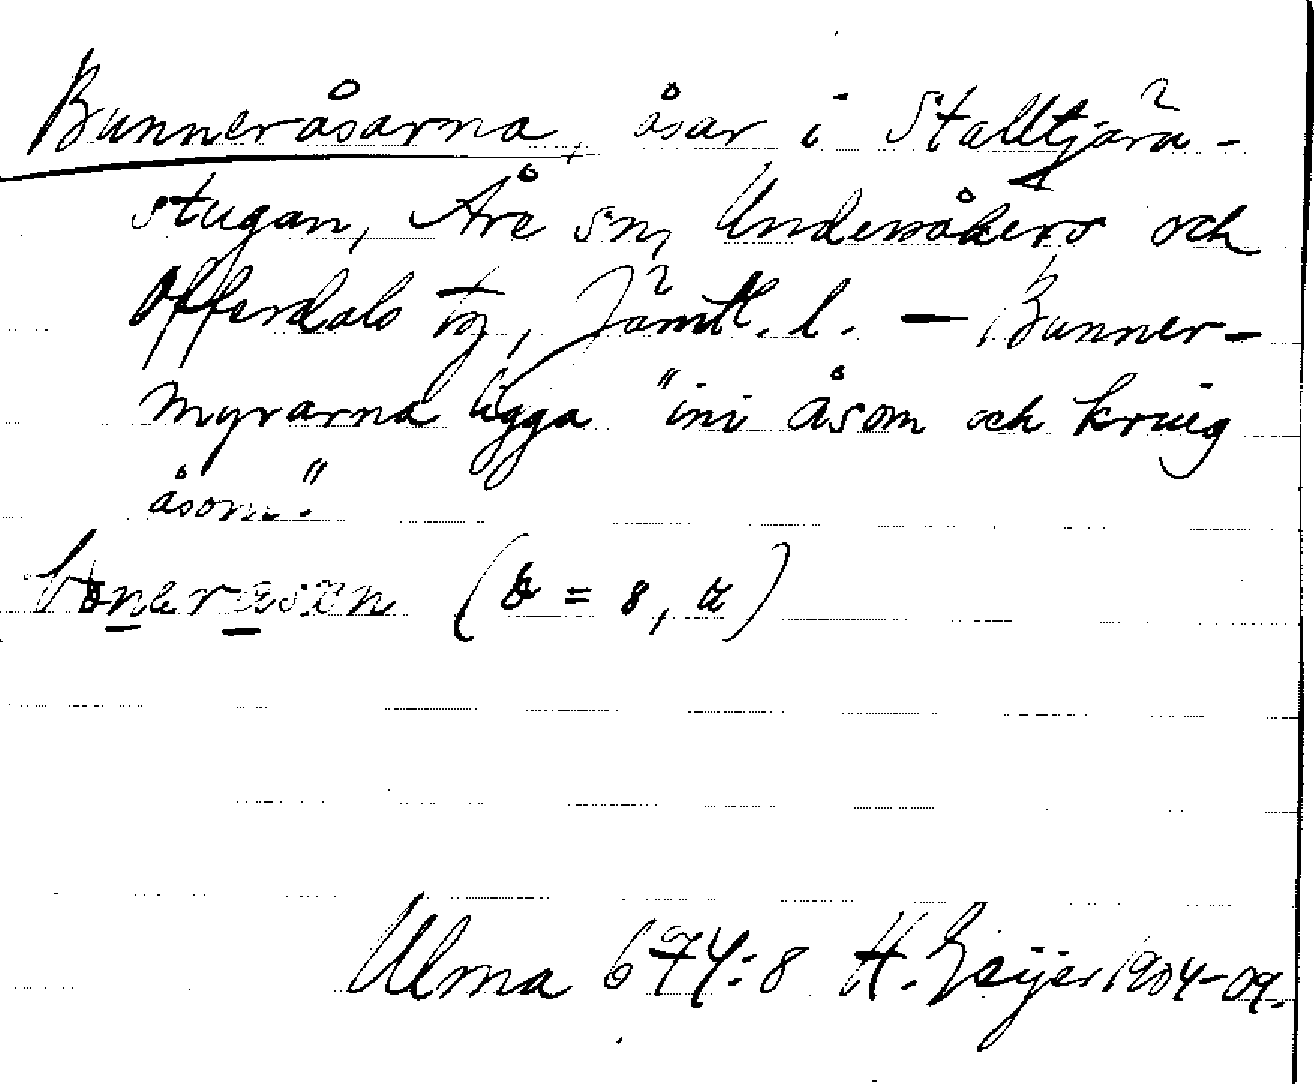 Bunneråsarna, åsar i Stalltjärn-
stugan, Åre sn, Undersåkers och
Offerdals tg, Jämtl. l. – Bunner-
myrarna ligga "ini åsom och kring
åsom."
( = 8, )
Ulma 674:8 H. Geijer 1904-09.